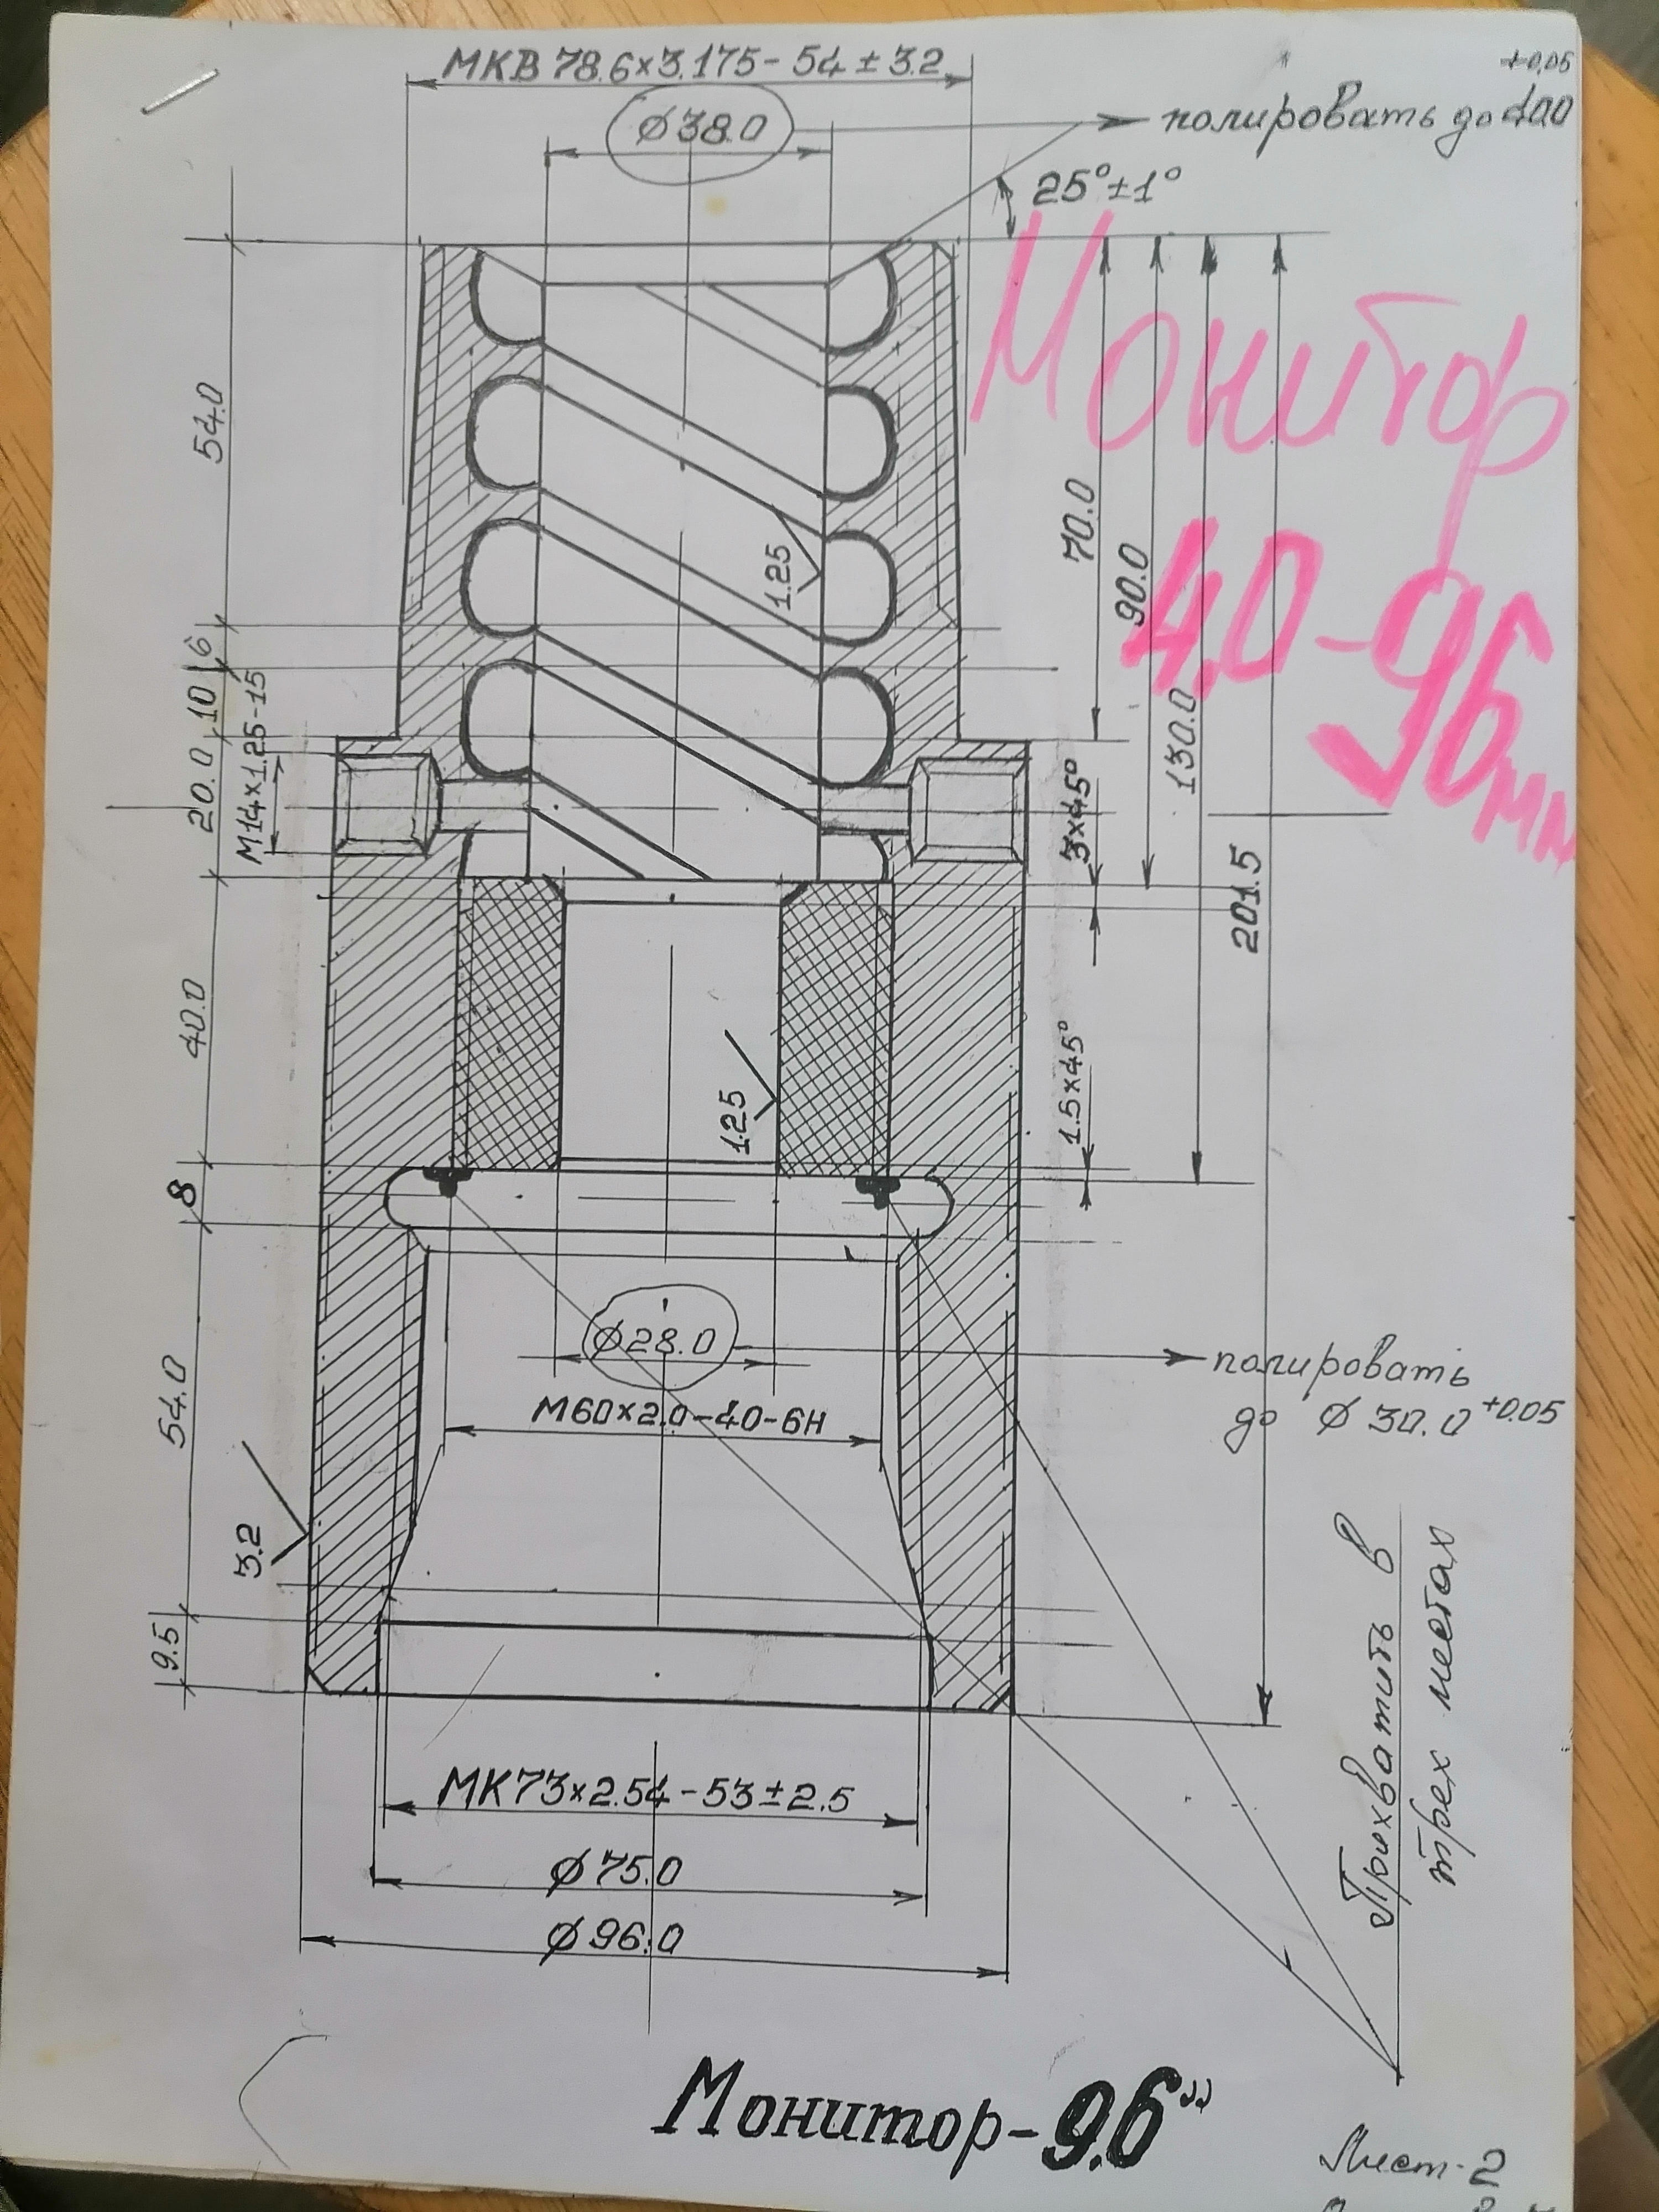 МКВ 78.6×3.175 - 54 ± 3.2
+0,05
⌀38.0
полировать до 40,0
25°±1°
Монитор
40-96 мм
54.0
6
10
20.0
М14×1.25-15
40.0
8
54.0
9.5
3.2
1.25
1.25
70.0
90.0
130.0
201.5
3×45°
1.5×45°
⌀28.0
полировать
до ⌀ 30.0 +0.05
М60×2.0-40-6Н
МК73×2.54-53±2.5
⌀75.0
⌀96.0
Прихватить в
трех местах
Монитор-96"
Лист-2